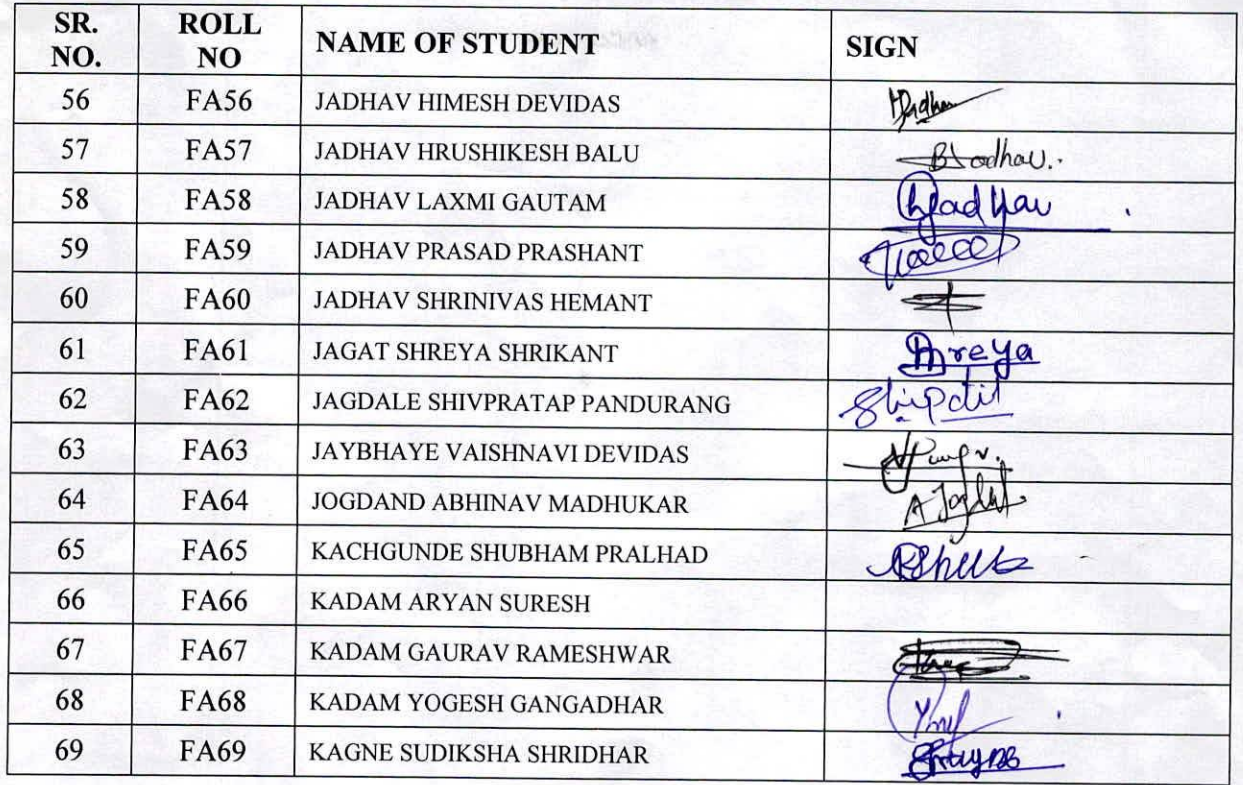 SR. NO. ROLL NO NAME OF STUDENT SIGN
56 FA56 JADHAV HIMESH DEVIDAS
57 FA57 JADHAV HRUSHIKESH BALU
58 FA58 JADHAV LAXMI GAUTAM
59 FA59 JADHAV PRASAD PRASHANT
60 FA60 JADHAV SHRINIVAS HEMANT
61 FA61 JAGAT SHREYA SHRIKANT
62 FA62 JAGDALE SHIVPRATAP PANDURANG
63 FA63 JAYBHAYE VAISHNAVI DEVIDAS
64 FA64 JOGDAND ABHINAV MADHUKAR
65 FA65 KACHGUNDE SHUBHAM PRALHAD
66 FA66 KADAM ARYAN SURESH
67 FA67 KADAM GAURAV RAMESHWAR
68 FA68 KADAM YOGESH GANGADHAR
69 FA69 KAGNE SUDIKSHA SHRIDHAR